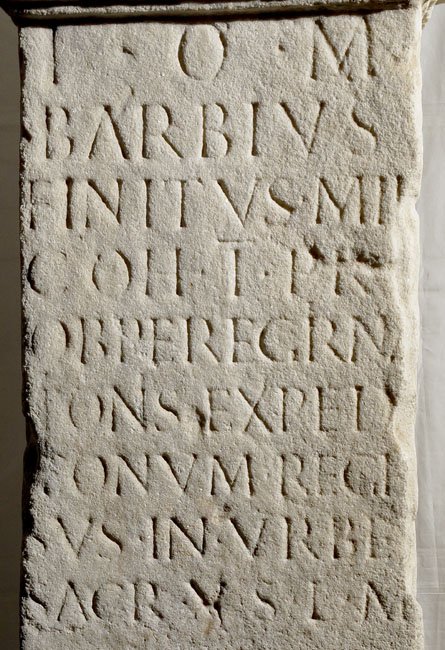 I · O · M
BARBIVS
FINITVS · MIL
COH · I · PR
OBPEREGRN
TONS · EXPEDI
TONVM · REGR
SVS · IN · VRBE
SACR · V S L · M